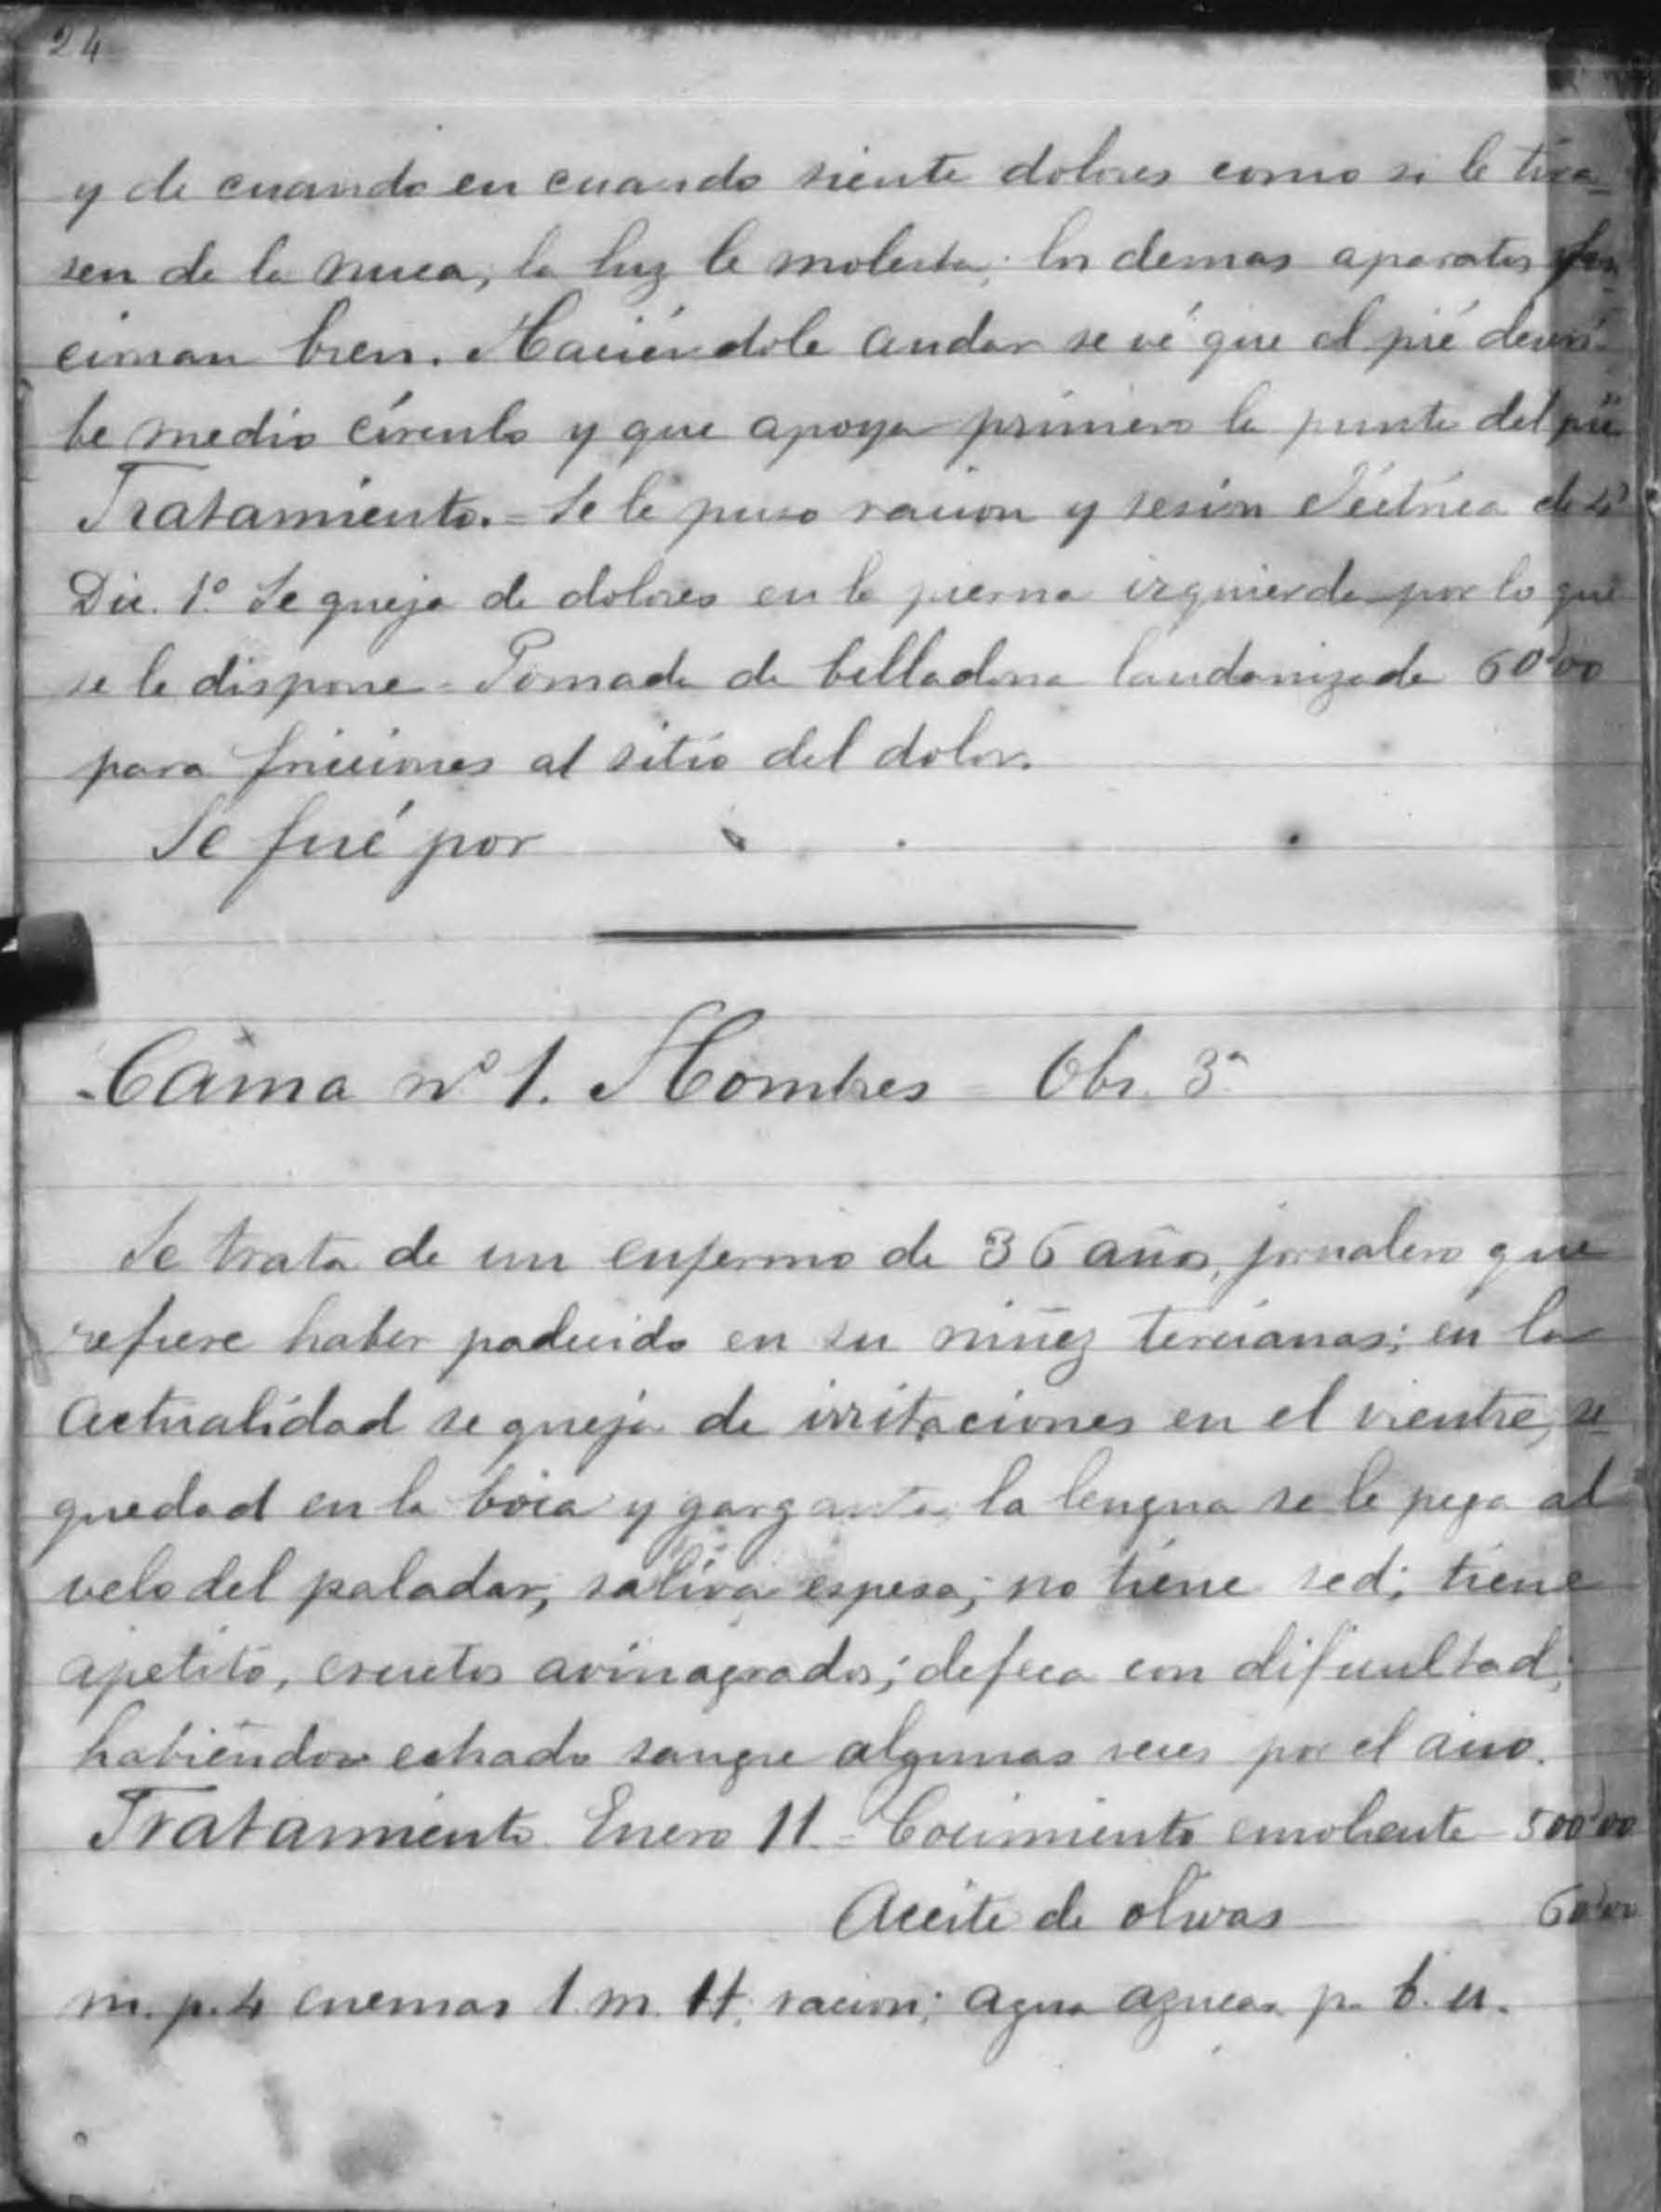 24
y de cuando en cuando siente dolores como si le tira-
sen de la nuca, la luz le molesta; los demas aparatos fun-
cionan bien. Haciéndole andar se vé que el pié descri-
be medio círculo y que apoya primero la punta del pié
Tratamiento. = Se le puso racion y sesion eléctrica de
Dic. 1º Se queja de dolores en la pierna izquierda por lo que
se le dispone = Pomada de belladona laudanizada 60'00
para fricciones al sitio del dolor.
Se fué por
Cama nº 1. Hombres = Obs. 3ª
Se trata de un enfermo de 36 años, jornalero que
refiere haber padecido en su niñez tercianas; en la
actualidad se queja de irritaciones en el vientre, se-
quedad en la boca y garganta la lengua se le pega al
velo del paladar, saliva espesa; no tiene sed; tiene
apetito, eructos avinagrados; defeca con dificultad;
habiendo echado sangre algunas veces por el ano.
Tratamiento. Enero 11. = Cocimiento emoliente 500'00
Aceite de olivas 60'00
m. p. 4 enemas 1. m. 1 t; racion; agua azucar p. b. u.